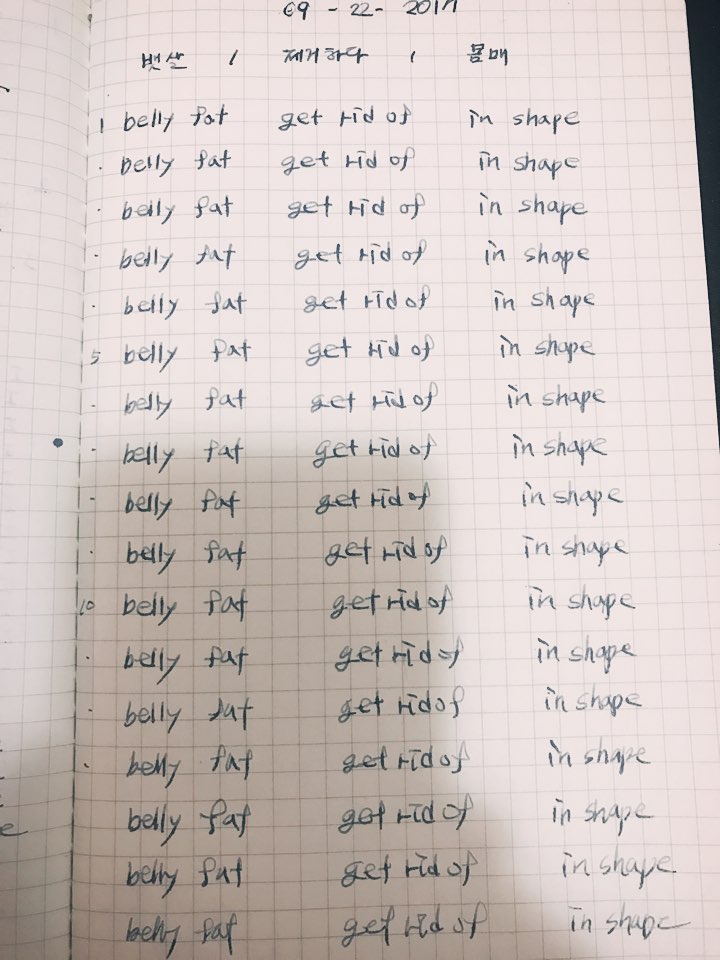 09 - 22 - 2017
뱃살 / 제거하다 / 몸매
1 belly fat get rid of in shape
· belly fat get rid of in shape
· belly fat get rid of in shape
· belly fat get rid of in shape
· belly fat get rid of in shape
5 belly fat get rid of in shape
· belly fat get rid of in shape
· belly fat get rid of in shape
· belly fat get rid of in shape
· belly fat get rid of in shape
10 belly fat get rid of in shape
· belly fat get rid of in shape
· belly fat get rid of in shape
· belly fat get rid of in shape
belly fat get rid of in shape
belly fat get rid of in shape
belly fat get rid of in shape